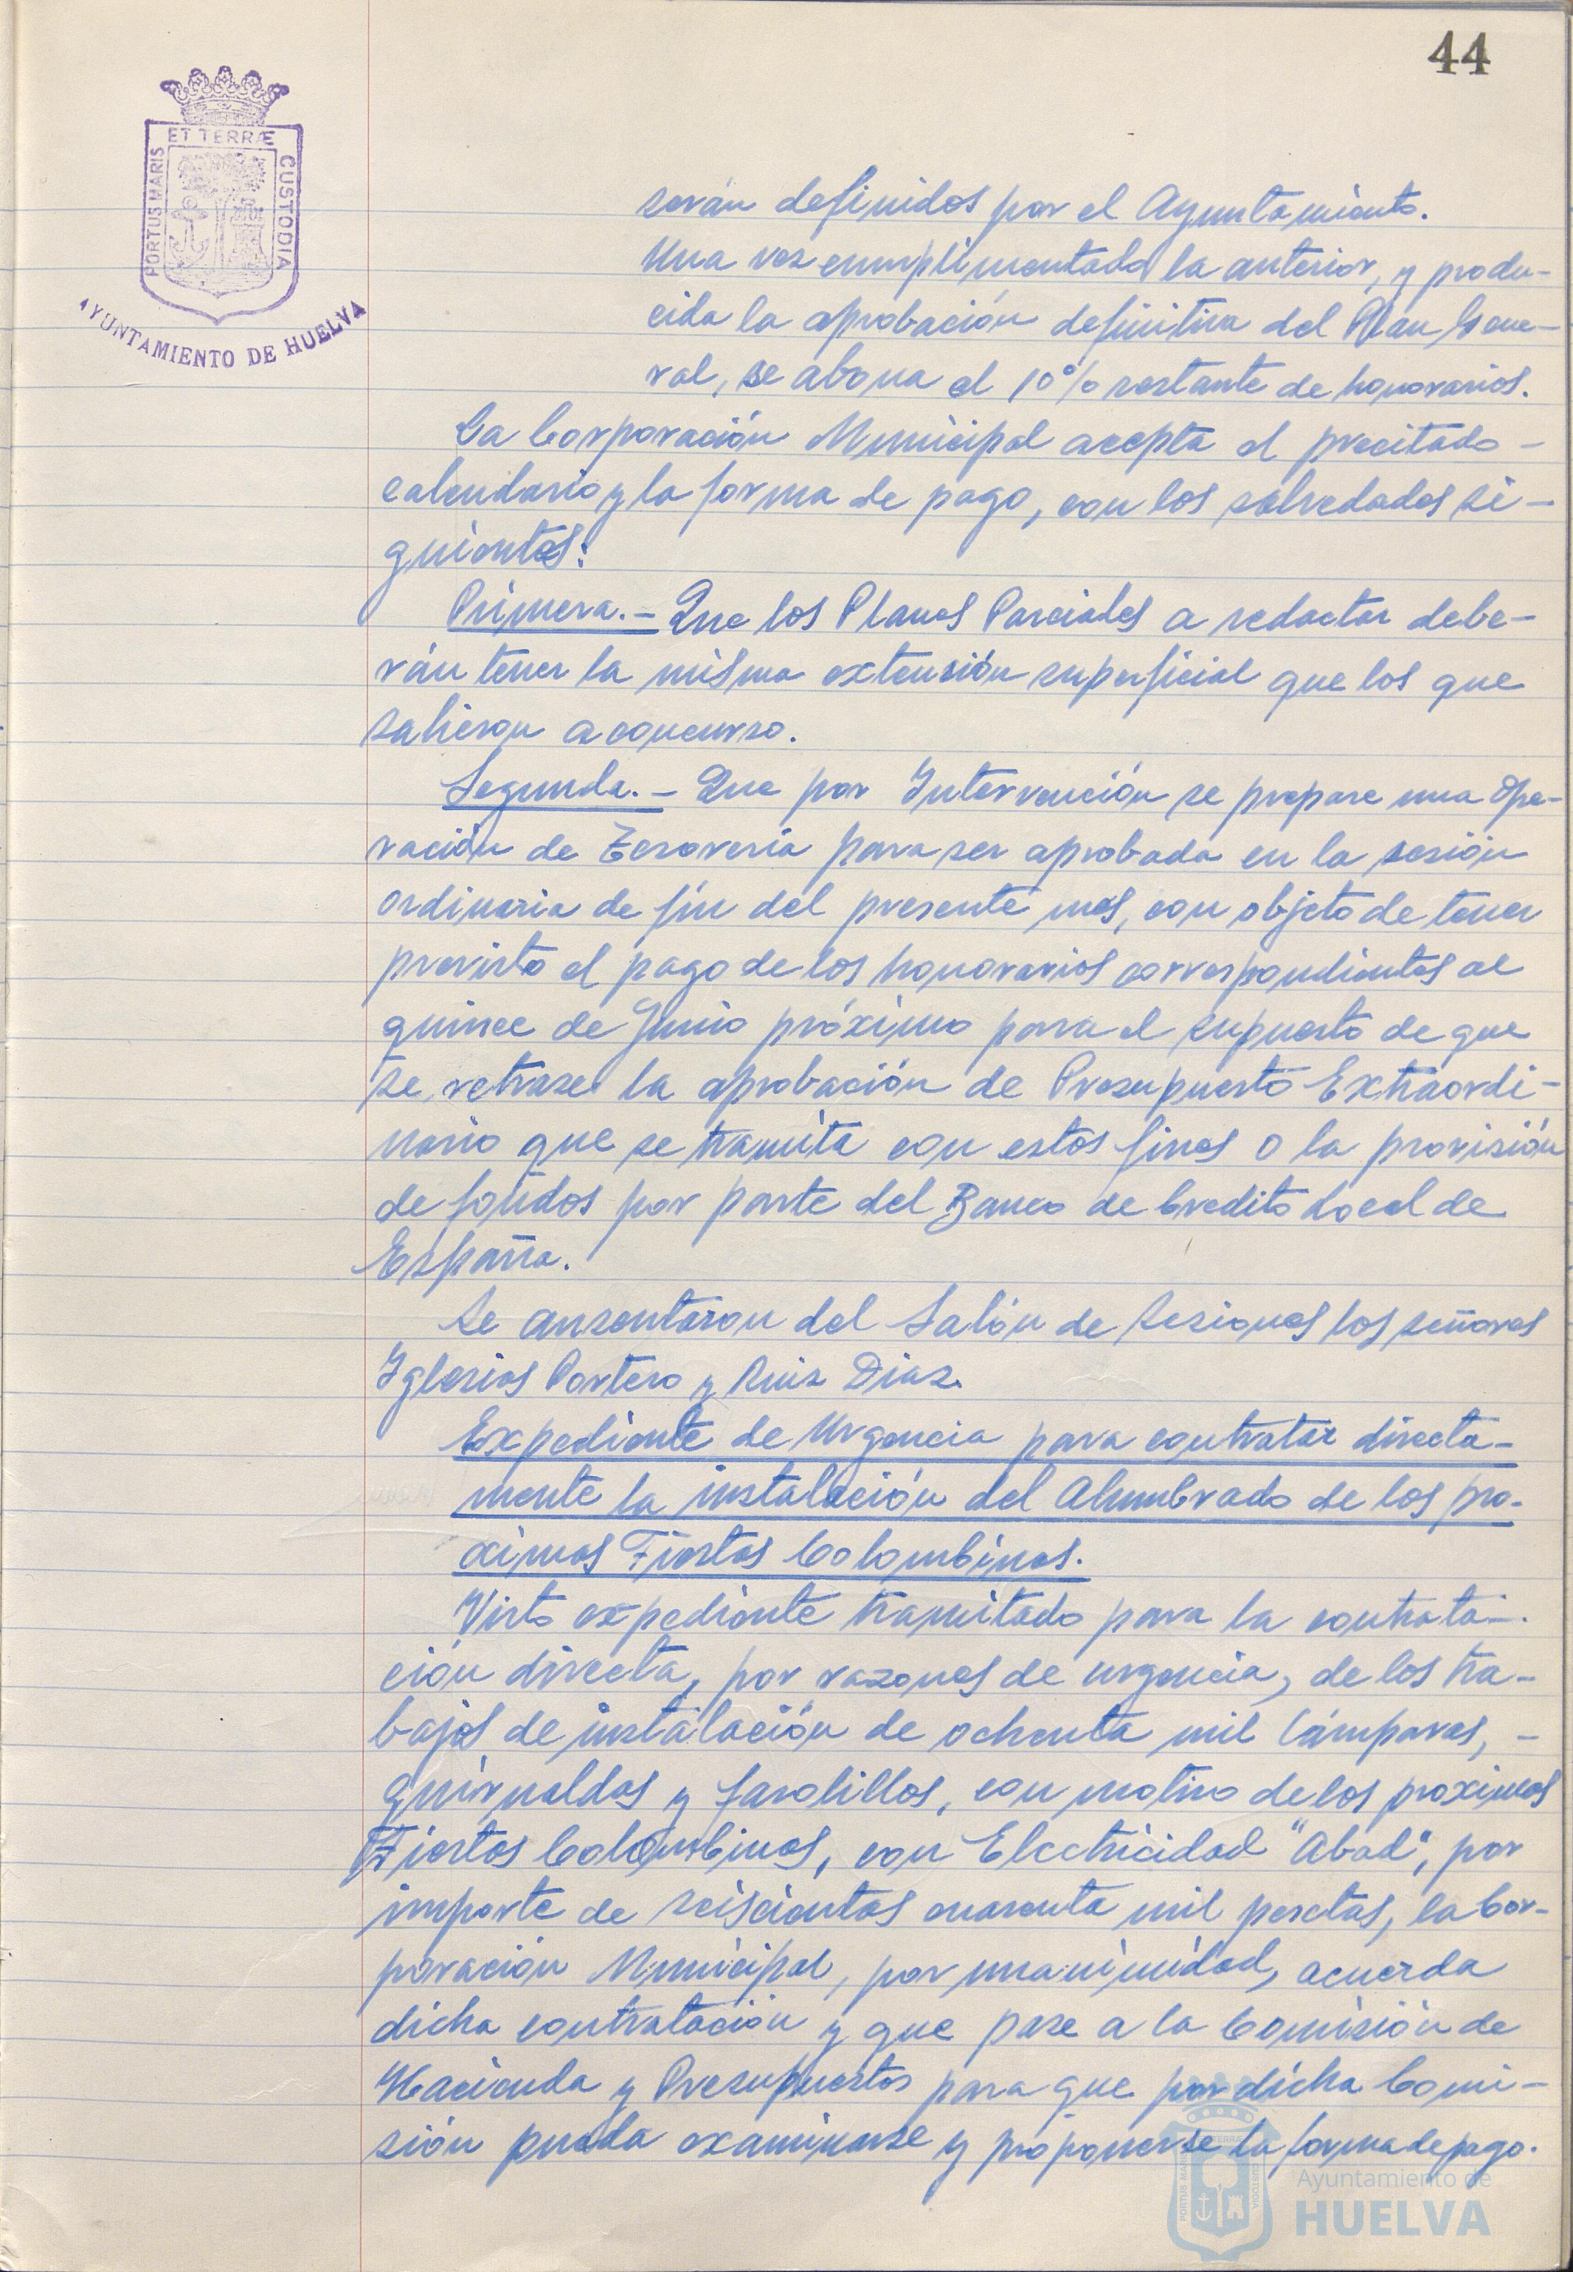 44
ET TERRÆ
PORTUS MARIS
CUSTODIA
AYUNTAMIENTO DE HUELVA
serán definidos por el Ayuntamiento.
Una vez cumplimentada la anterior, y produ-
cida la aprobación definitiva del Plan Gene-
ral, se abona el 10% restante de honorarios.
La Corporación Municipal acepta el precitado -
calendario y la forma de pago, con los salvedades si-
guientes:
Primera.- Que los Planes Parciales a redactar debe-
rán tener la misma extensión superficial que los que
salieron a concurso.
Segunda.- Que por Intervención se prepare una Ope-
ración de Tesorería para ser aprobada en la sesión
ordinaria de fin del presente mes, con objeto de tener
previsto el pago de los honorarios correspondientes al
quince de Junio próximo para el supuesto de que
se retrase la aprobación de Presupuesto Extraordi-
nario que se tramita con estos fines o la provisión
de fondos por parte del Banco de Credito Local de
España.
Se ausentaron del Salón de Sesiones los señores
Iglesias Portero y Ruiz Diaz.
Expediente de Urgencia para contratar directa-
mente la instalación del Alumbrado de los pro-
ximas Fiestas Colombinas.
Visto expediente tramitado para la contrata-
ción directa, por razones de urgencia, de los tra-
bajos de instalación de ochenta mil lámparas, -
guirnaldas y farolillos, con motivo de los proximos
Fiestas Colombinas, con Electricidad "Abad", por
importe de seiscientas cuarenta mil pesetas, la Cor-
poración Municipal, por unanimidad, acuerda
dicha contratación y que pase a la Comisión de
Hacienda y Presupuestos para que por dicha Comi-
sión pueda examinarse y proponerse la forma de pago.
Ayuntamiento de
HUELVA